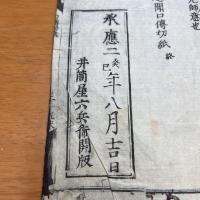 開口傳切紙 終
承應二癸巳年八月吉日
井筒屋六兵衛開版